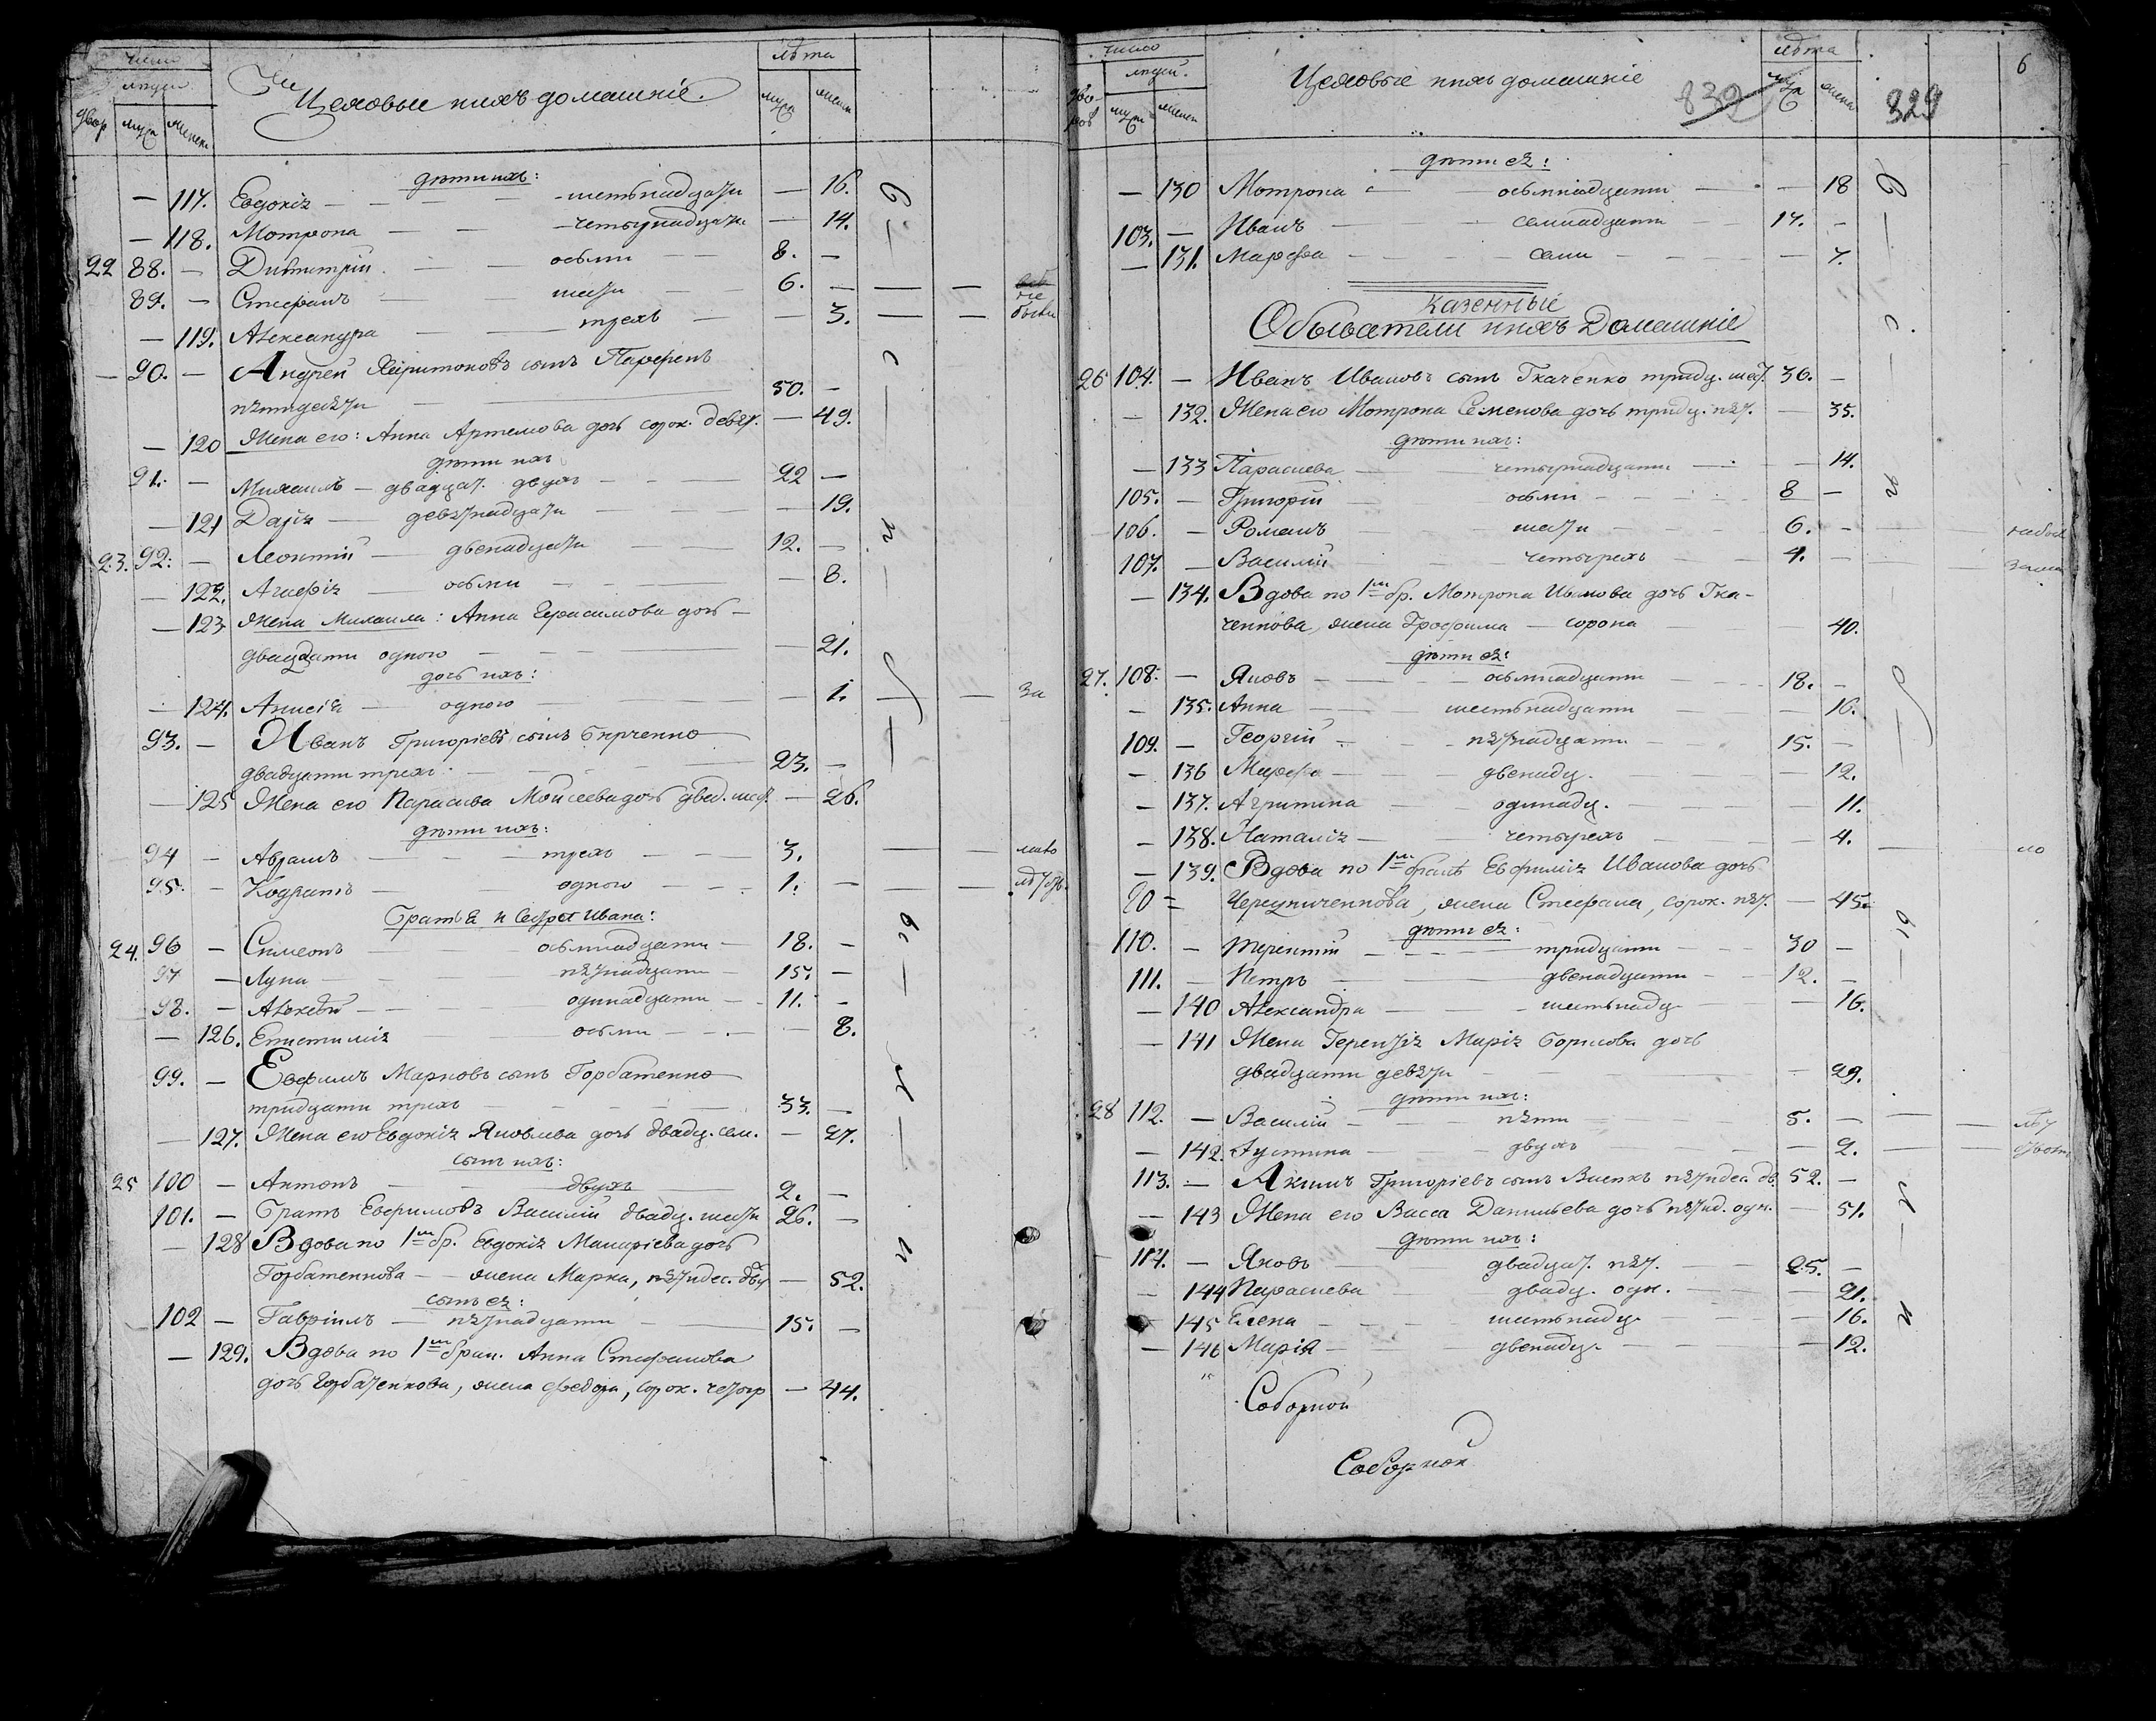 число
людей
двор муж женск
Цеховые и ихъ домашніе.
лѣта
муж женс
дѣти ихъ:
— 117. Евдокія — шестьнадцати — 16.
— 118. Мотрона — четырнадцати — 14.
22 88. — Димитрій — осьми — 8. —
89. — Стефанъ — шести — 6. — не
— 119. Александра — трехъ — 3. — были
— 90. — Андрей Харитоновъ сынъ Парфенъ
пятидесяти — 50. —
— 120 Жена его: Анна Артемова дочь сорок. девят. — 49.
дѣти ихъ
91. — Михаилъ — двадцат. двухъ — 22 —
— 121 Дарія — девятнадцати — 19.
23. 92. — Леонтій — двенадцати — 12. —
— 122. Агафія — осьми — 8.
— 123 Жена Михаила: Анна Герасимова дочь —
двадцати одного — 21.
дочь ихъ:
— 124. Анисія — одного — 1. — за
93. — Иванъ Григоріевъ сынъ
двадцати трехъ — 23. —
— 125 Жена его Параскева Моисеева дочь двад. шест. — 26.
дѣти ихъ:
94 — Аврамъ — трехъ — 3. — мало
95. — Кодратъ — одного — 1. —
Братья и Сестра Ивана:
24. 96 — Симеонъ — осьмнадцати — 18. —
97 — Лука — пятнадцати — 15. —
98. — Алексѣй — одинадцати — 11. —
— 126. Епистимія — осьми — 8.
99. — Евфимъ Марковъ сынъ Горбатенко
тридцати трехъ — 33. —
— 127. Жена его Евдокія Яковлева дочь двадц. сем. — 27.
сынъ ихъ:
25 100 — Антонъ — двухъ — 2. —
101. — Братъ Евфимовъ Василій двадц. шести 26. —
— 128 Вдова по 1м бр. Евдокія Макаріева дочь
Горбатенкова — жена Марка, пятидес. дву — 52.
сынъ ея:
102 — Гавріилъ — пятнадцати — 15. —
— 129. Вдова по 1м брак. Анна Стефанова
дочь Горбатенкова, жена Федора, сорок. четыр — 44.
число
людей.
дворов муж женск
Цеховые и ихъ домашніе
лѣта
муж женс
839 829 6
дѣти ея:
— 130 Мотрона — осьмнадцати — 18
103. — Иванъ — семнадцати — 17. —
— 131. Марфа — семи — 7.
Казенные
Обыватели и ихъ Домашніе
26 104. — Иванъ Ивановъ сынъ Ткаченко тридц. шест. 36. —
— 132. Жена его Мотрона Семенова дочь тридц. пят. — 35.
дѣти ихъ:
— 133 Параскева — четырнадцати — 14.
105. — Григорій — осьми — 8 —
106. — Романъ — шести — 6. —
107. — Василій — четырехъ — 4. —
— 134. Вдова по 1м бр. Мотрона Иванова дочь Тка-
ченкова, жена Трофима — сорока — 40.
дѣти ея:
27. 108. — Яковъ — осьмнадцати — 18. —
— 135. Анна — шестьнадцати — 16.
109. — Георгій — пятнадцати — 15. —
— 136 Марфа — двенадц. — 12.
— 137. Агрипина — одинадц. — 11.
— 138. Наталія — четырехъ — 4. — по
— 139. Вдова по 1м бракѣ Евфимія Иванова дочь
20 = жена Стефана, сорок. пят. — 45.
дѣти ея:
110. — Терентій — тридцати — 30 —
111. — Петръ — двенадцати — 12. —
— 140 Александра — шестьнадц — 16.
— 141 Жена Терентія Марія Борисова дочь
двадцати девяти — 29.
дѣти ихъ:
28 112. — Василій — пяти — 5. —
— 142. Іустина — двухъ — 2.
113. — Акимъ Григоріевъ сынъ пятидес. дв. 52. —
— 143 Жена его Васса Данильева дочь пятид. одн. — 51.
дѣти ихъ:
114. — Яковъ — двадцат. пят. — 25. —
— 144 Параскева — двадц. одн. — 21.
— 145 Елена — шестьнадц — 16.
— 146 Марія — двенадц. — 12.
Соборной
Соборной